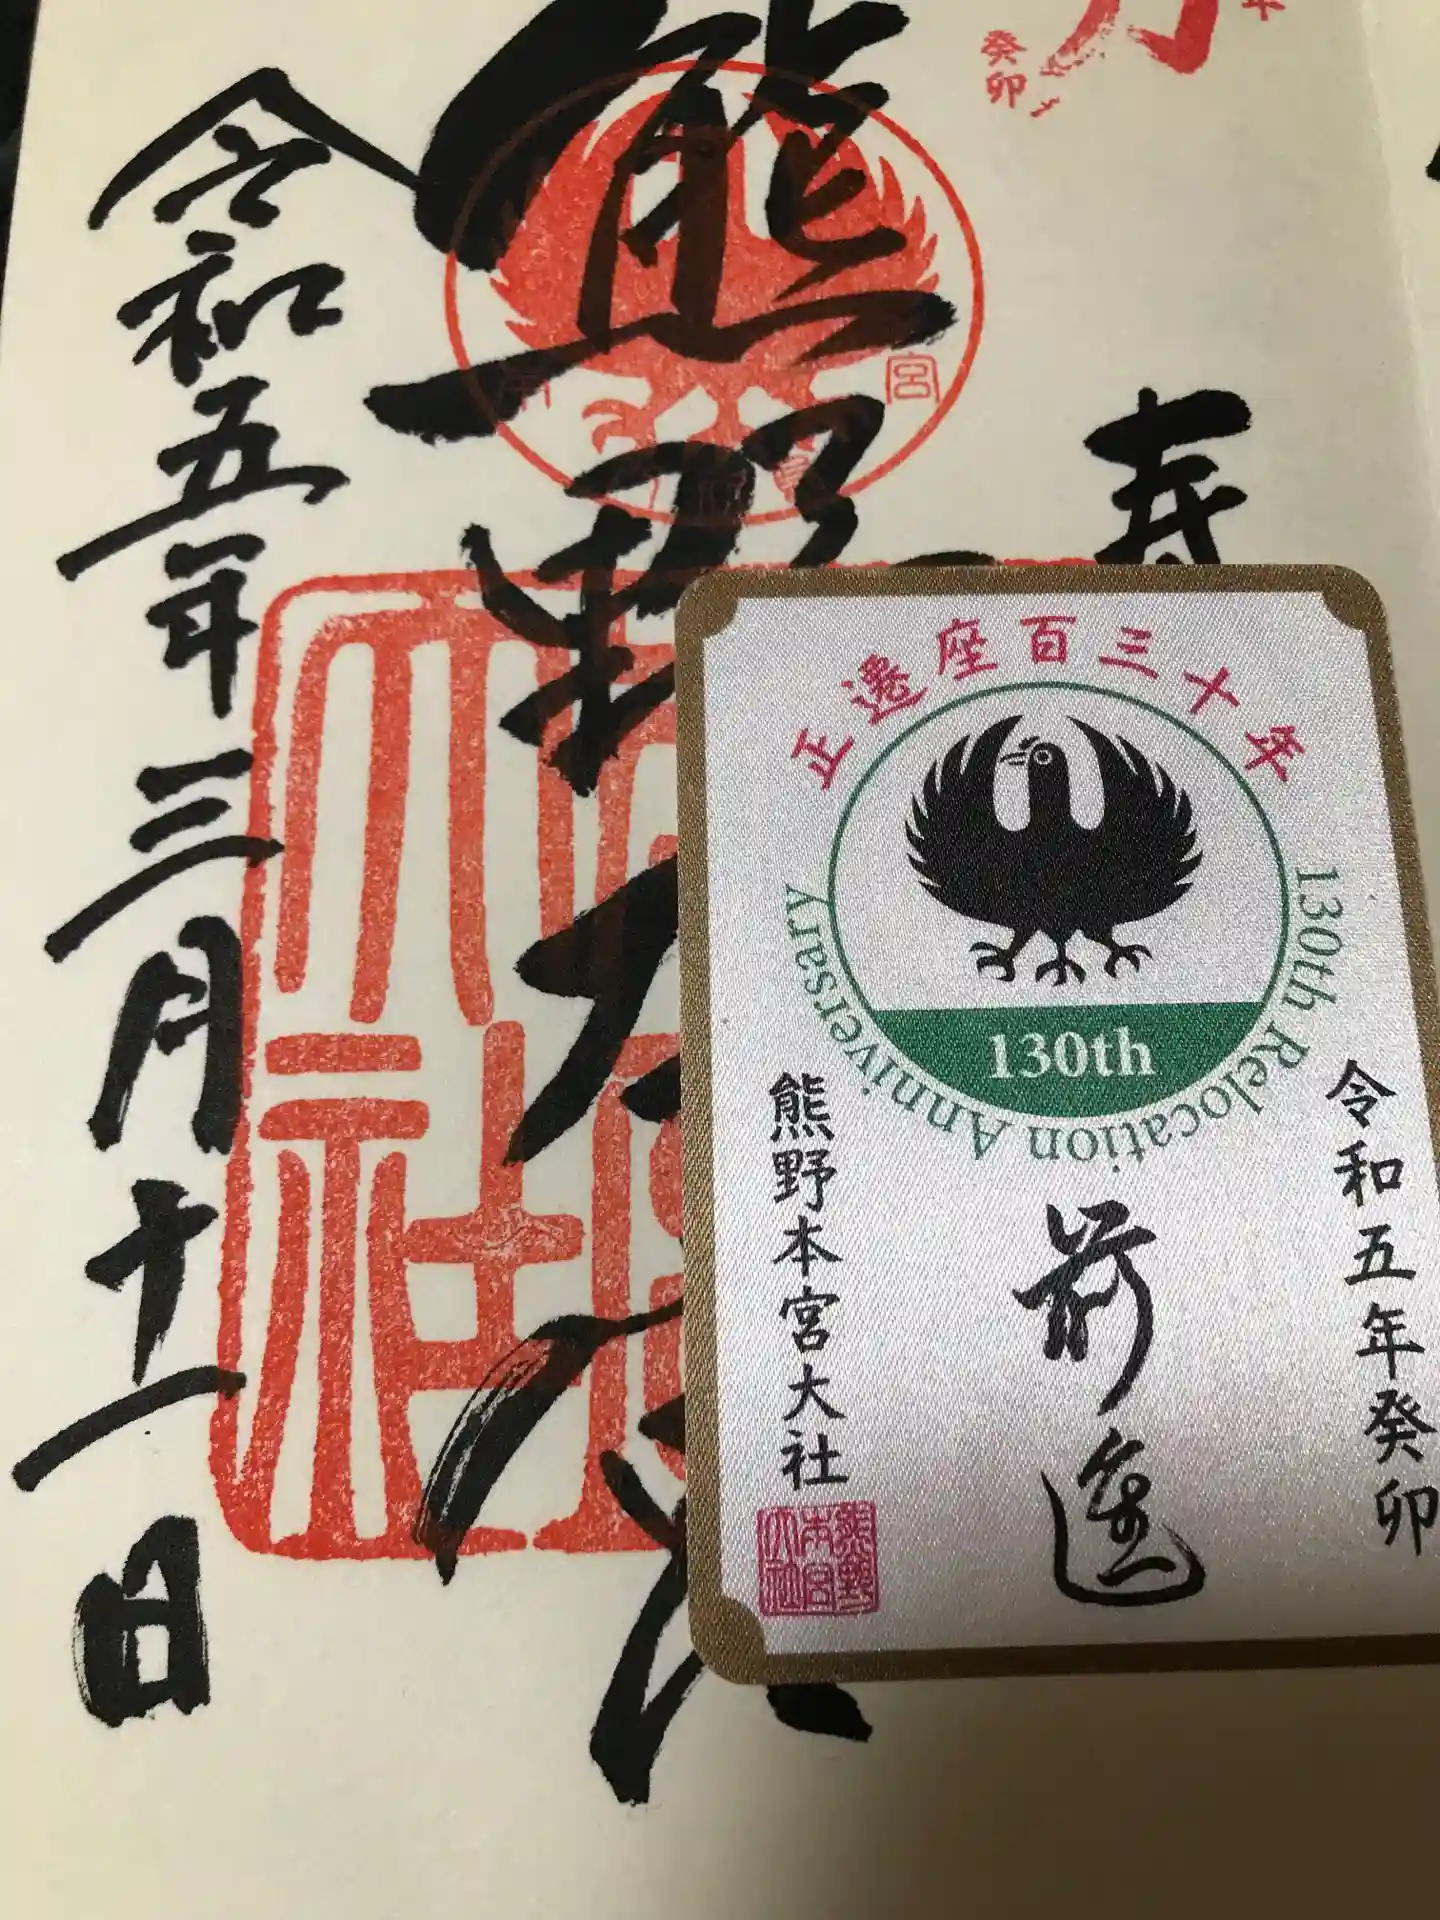 癸卯
寿
熊野大
令和五年三月十一日
宮
大社
正遷座百三十年
130th
130th Relocation Anniversary
令和五年癸卯
前進
熊野本宮大社
熊野本宮大社